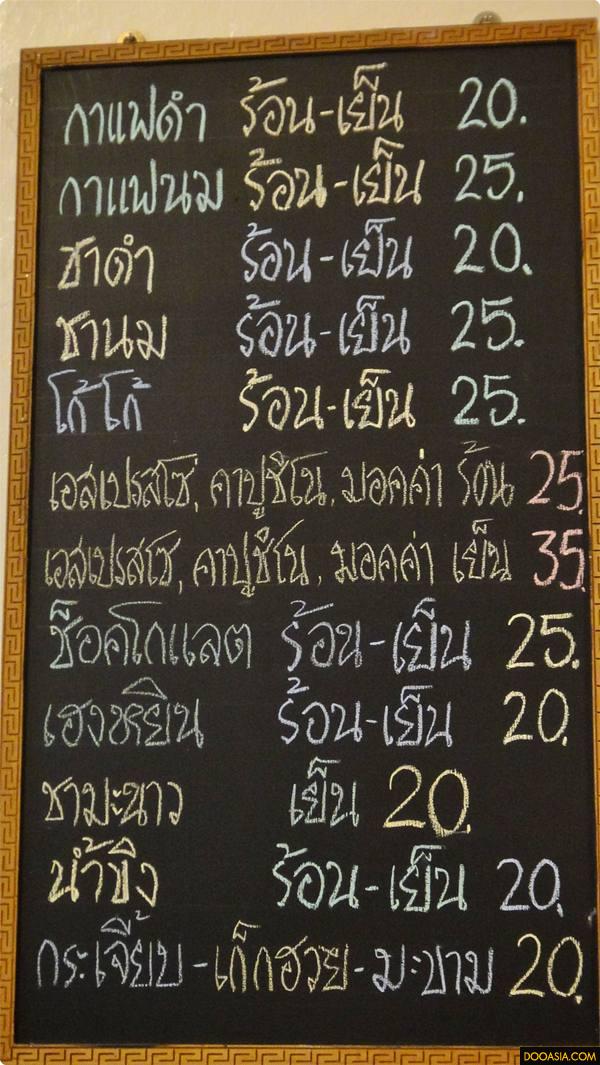 กาแฟดำ ร้อน-เย็น 20.
กาแฟนม ร้อน-เย็น 25.
ชาดำ ร้อน-เย็น 20.
ชานม ร้อน-เย็น 25.
โก้โก้ ร้อน-เย็น 25.
เอสเปรสโซ่, คาปูชิโน, มอคค่า ร้อน 25.
เอสเปรสโซ, คาปูชิโน, มอคค่า เย็น 35.
ช็อคโกแลต ร้อน-เย็น 25.
เฮงหยิน ร้อน-เย็น 20.
ชามะนาว เย็น 20.
น้ำขิง ร้อน-เย็น 20.
กระเจี๊ยบ-เก็กฮวย-มะขาม 20.
DOOASIA.COM